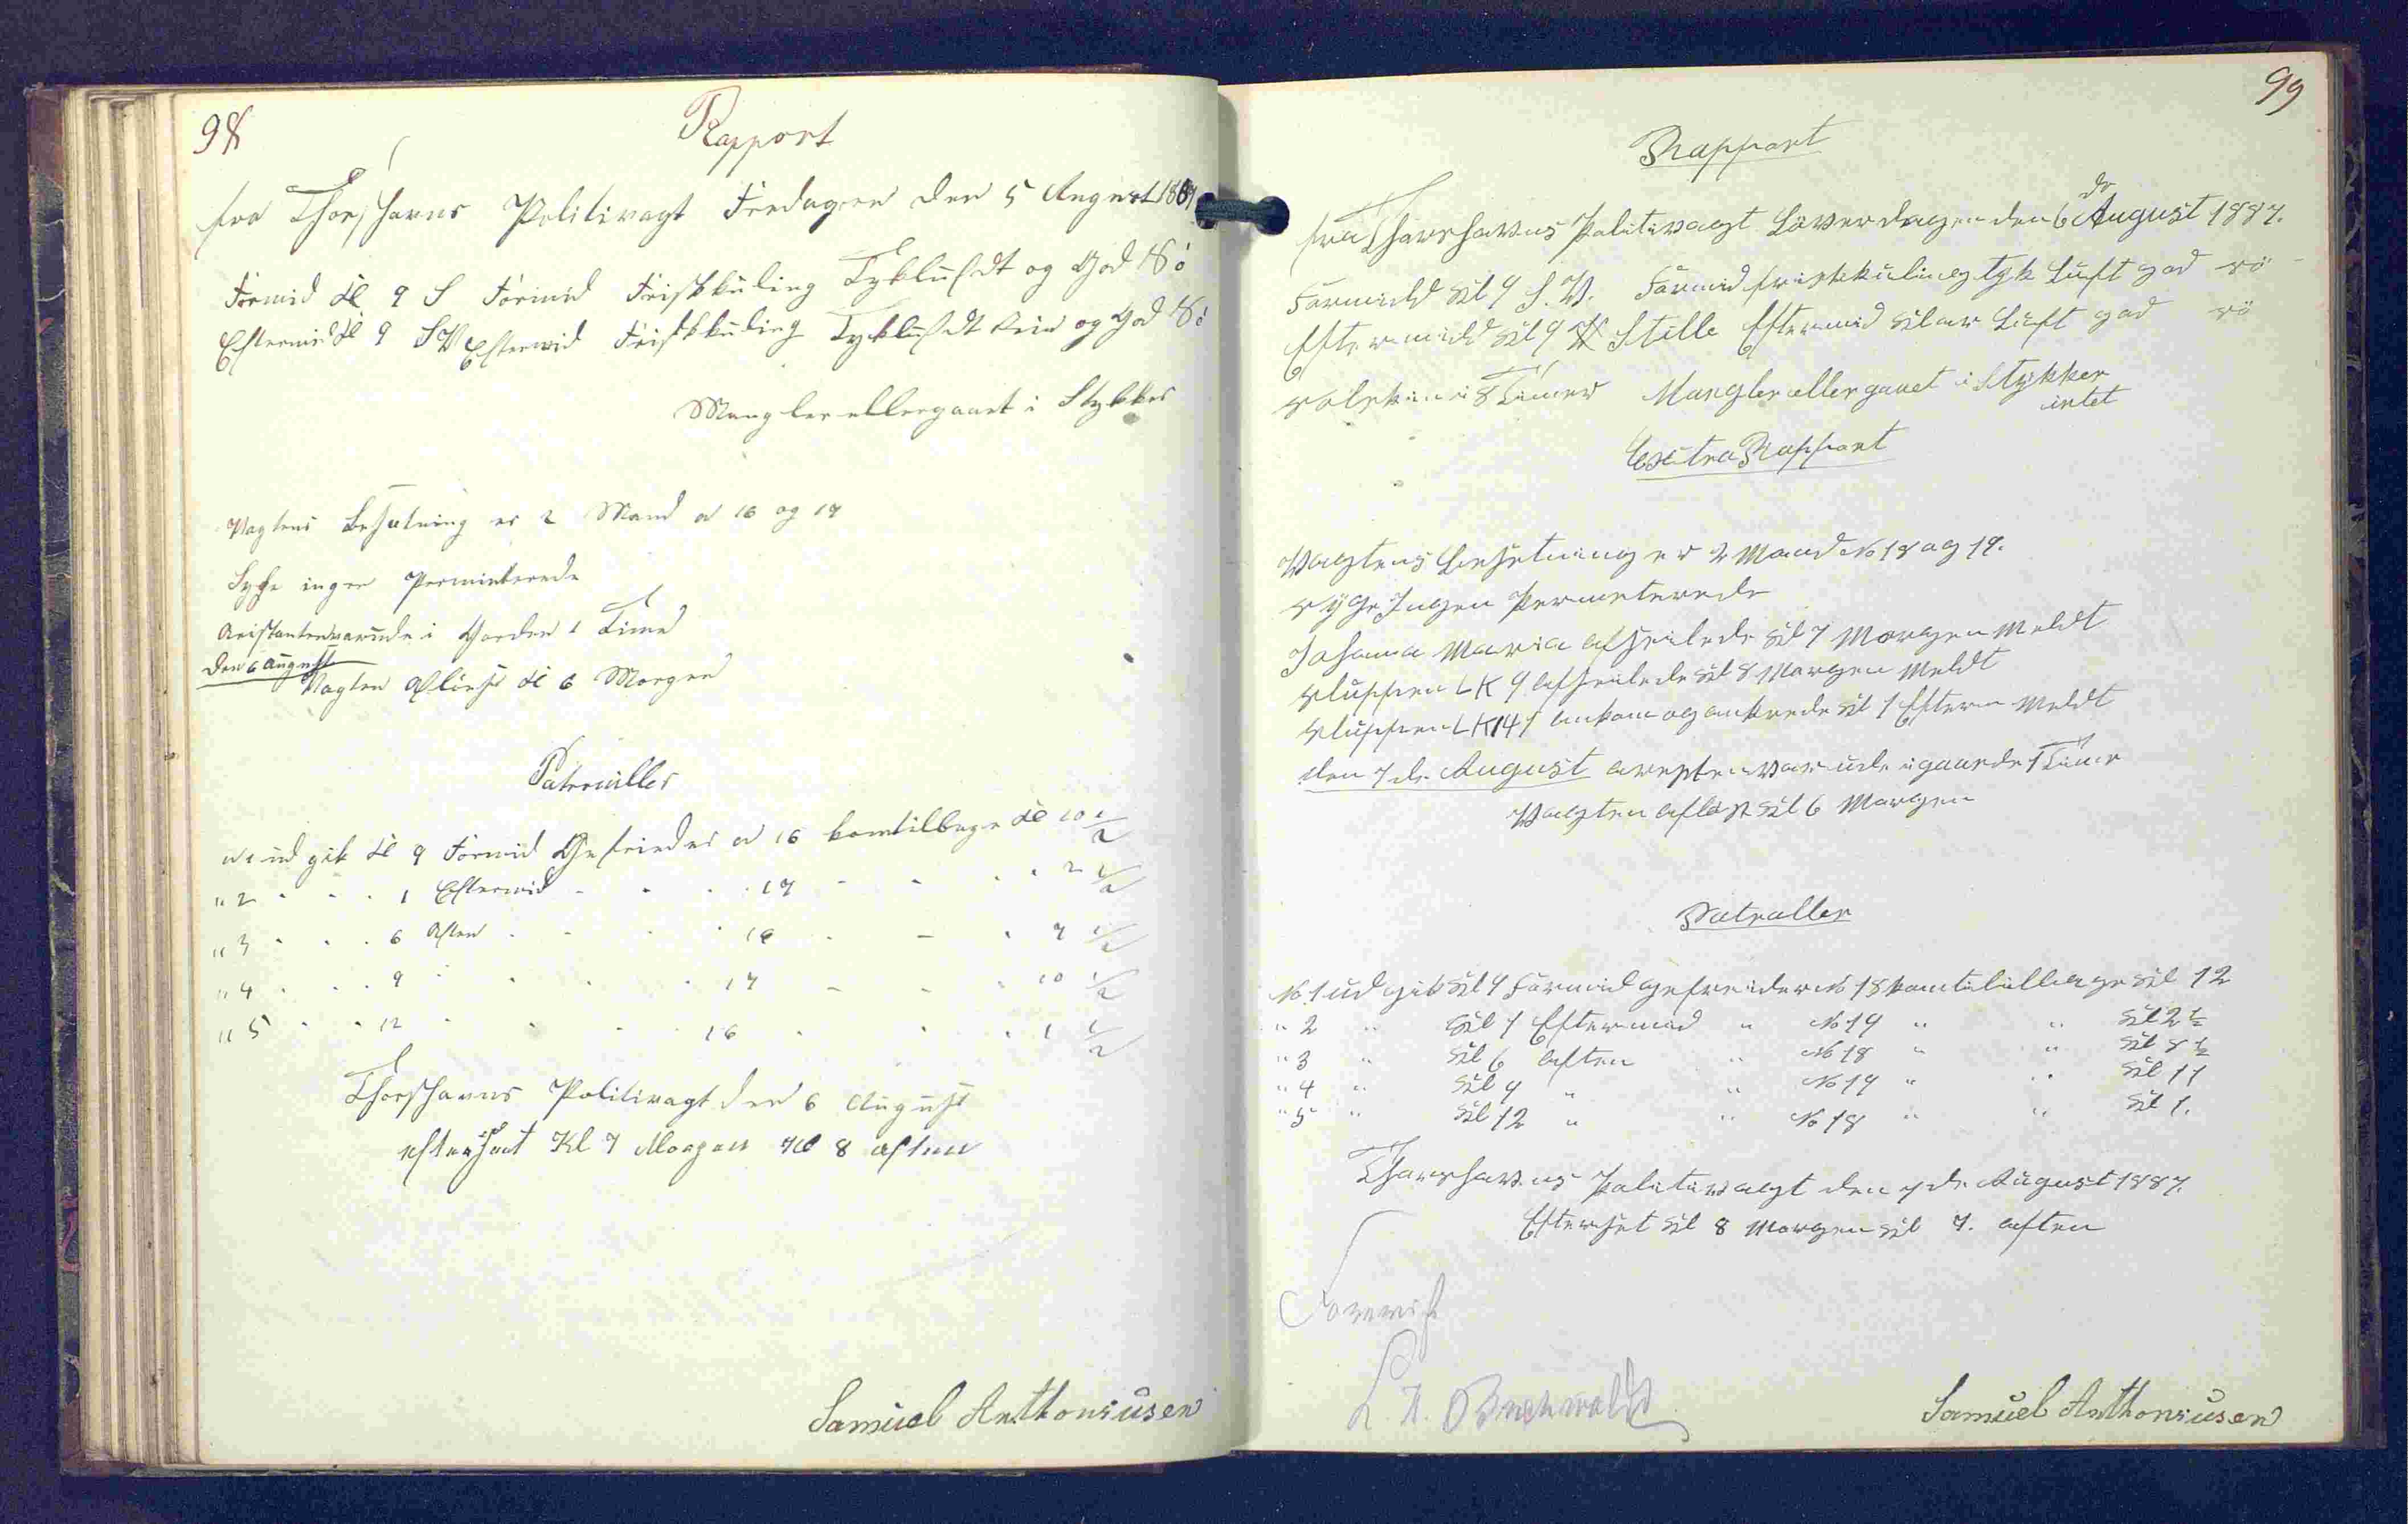 98
Rapport
fra Thorshavns Politivagt Fredagen den 5 August 1887
Formid Kl 9 S Formid Friskkuling Tykluft og God Rö
Eftermid Kl 9 SV Eftermid Friskkuling Tykluft Rein og God Rö
Mangler ellergaaet i Stykker
Vagtens Besætning er 2 Mand № 16 og 17
Syge ingen Permiterede
Aristantenvarude i Gorden 1 Time
Den 6 August
Vagten Afløst Kl 6 Morgen
Patrouiller
№ 1 ud gik Kl 9 Formid Gefreider № 16 komtilbage Kl 10 1/2
" 2 " " " 1 Eftermid " " " 17 " " " 2 1/2
" 3 " " " 6 Aften " " " 16 " " " 7 1/2
" 4 " " " 9 " " " " 17 " " " 10 1/2
" 5 " " 12 " " " 16 " " " 1 1/2
Thorshavns Politivagt den 6 August
efterset Kl 7 Morgen Kl 8 aften
Samuel Anthoniusen
99
Rapport
fra Thorshavns Politivagt Löverdagen den 6 de August 1887.
Formidd Kl 9 S.V. Formid friskkuling tyk Luft god rö
Eftermidd Kl 9 Stille Eftermid klar Luft god rö
solskin i 8 Timer Mangler eller gaaet i Stykker
intet
Extra Rapport
Vagtens Besetning er 2 Mand № 18 og 19.
syge Ingen Permeterede
Johanna Maria afseilede Kl 7 Morgen Meldt
sluppen LK 9 afseilede Kl 8 Morgen Meldt
sluppen LK 141 ankom og ankrede Kl 1 Efterm Meldt
den 7 de August aresten var ude i gaarde 1 Time
Vagten aflöst Kl 6 Morgen
Patroller
№ 1 ud gik Kl 9 Formid gefreider № 18 komtilbage Kl 12
" 2 " Kl 1 Eftermid " № 19 " " Kl 2 1/2
" 3 " Kl 6 aften " № 18 " " Kl 8 1/2
" 4 " Kl 9 " " № 19 " " Kl 11
" 5 " Kl 12 " " № 18 " " Kl 1.
Thorshavns Politivagt den 7 de August 1887.
Efterset Kl 8 Morgen Kl 7. aften
Forevist
Samuel Anthoniusen